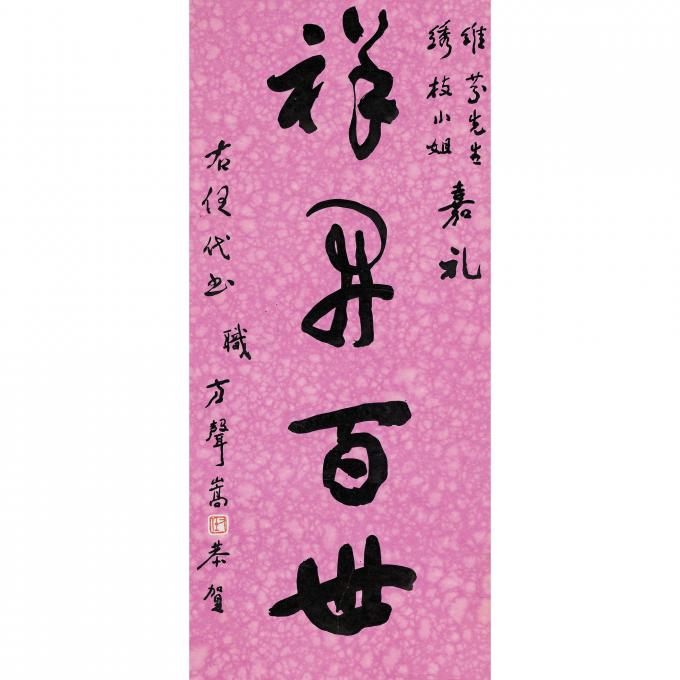 維芬先生
綉枝小姐
嘉礼
祥開百世
右任代书
職方聲嵩恭賀